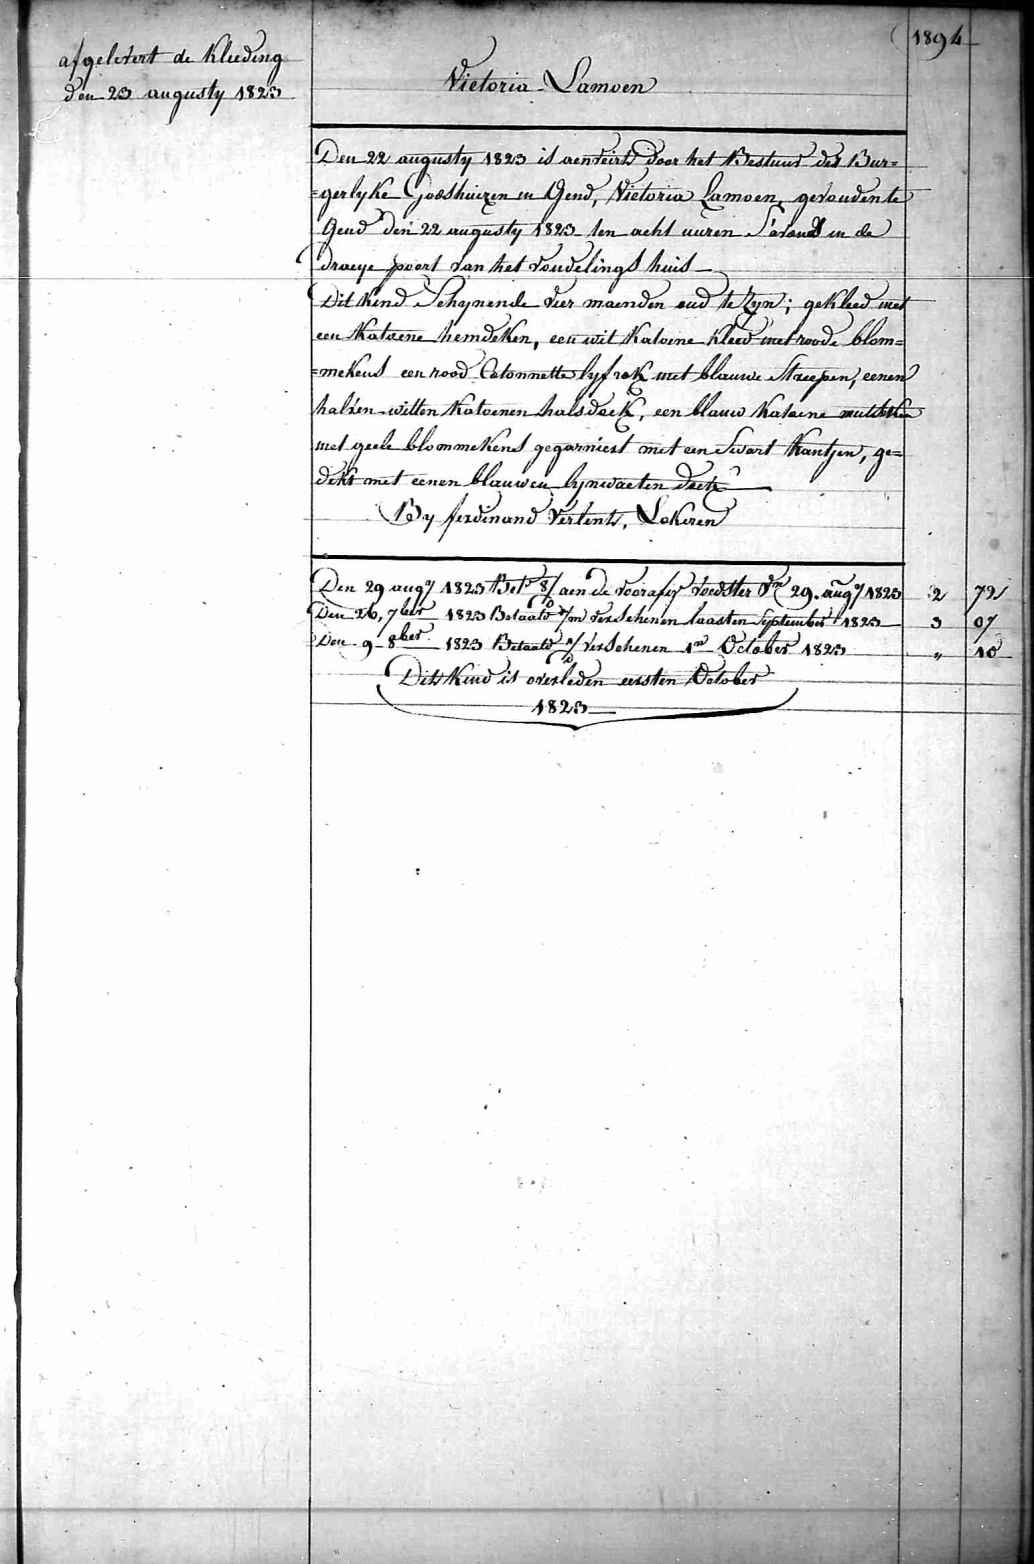 1894
afgelevert de Kleeding
den 23 augusty 1823
Victoria Lamoen
Den 22 augusty 1823 is aenveird door het Bestuur des Bur=
=gerlyke Godshuizen en Gend, Victoria Lamoen, gevonden te
Gend den 22 augusty 1823 ten acht uuren S'avonds in de
draeye poort van het vondelings huis
Dit Kind Schynende vier maenden oud te Zyn; gekleed met
een Katoene hemdeken, een wit Katoene Kleed met roode blom=
=mekens een rood Cotonnette lyfrok met blauwe Streepen, eenen
halven witten Katoenen halsdoek, een blauw Katoene
met geele blommekens gegarniert met een Swart Kantjen, ge=
dekt met eenen blauwen lynwaeten doek
By ferdinand Vertents, Lokeren
Den 29 augy 1823 Bet° aen de voorafg voedster 29. augy 1823 2 72
Den 26, 7ber 1823 Betaald verschenen laasten September 1823 3 07
Den 9 8ber 1823 Betaald verschenen 1m October 1823 " 10
Dits Kind is overleden eersten October
1823